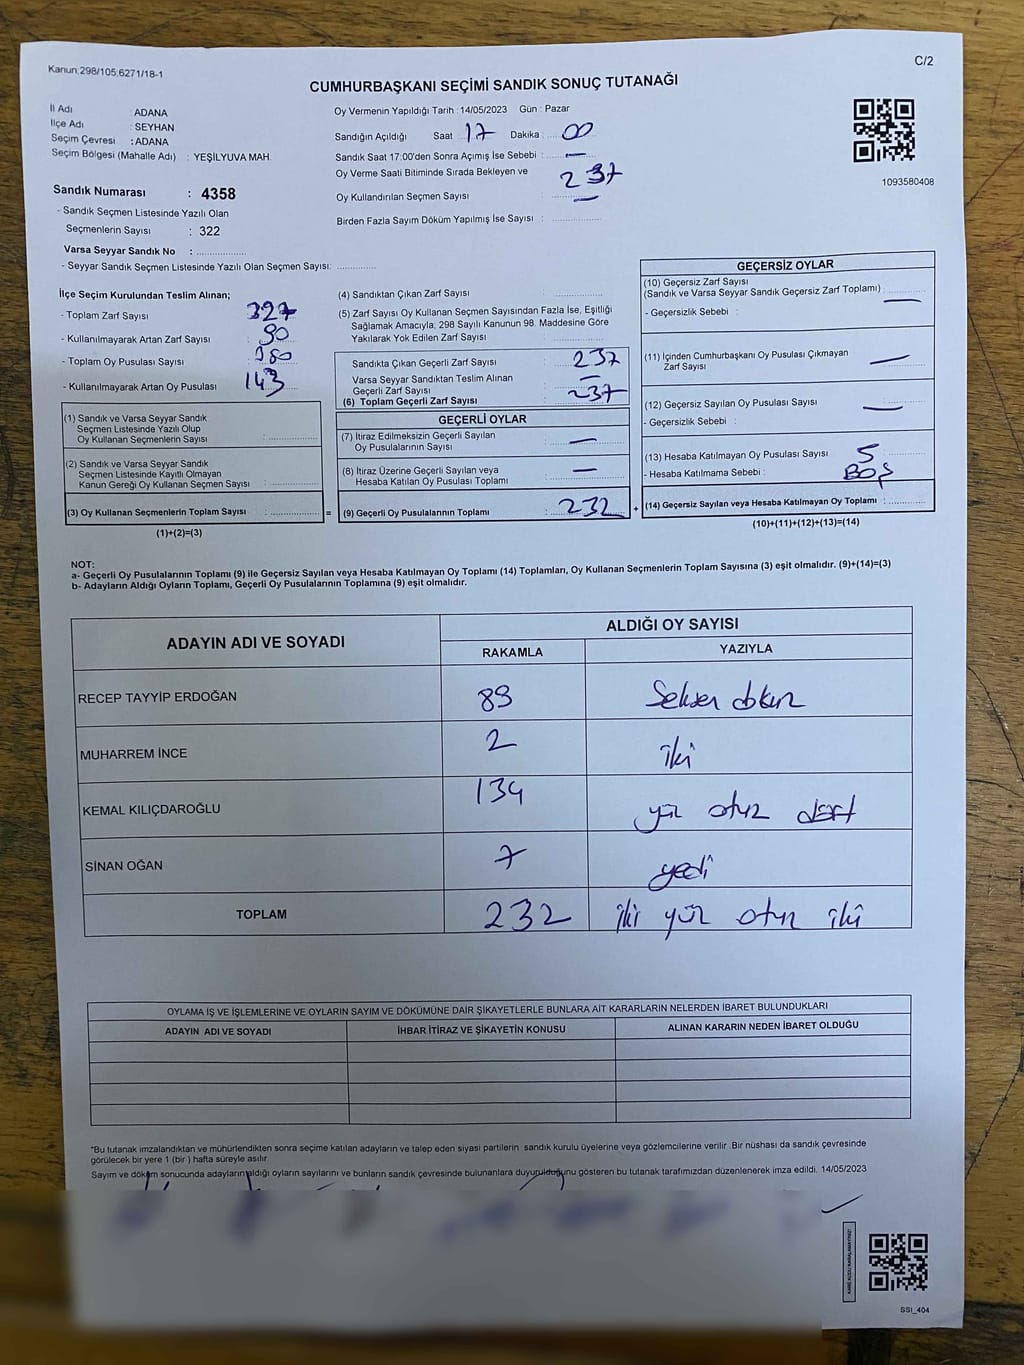 Kanun:298/105;6271/18-1
C/2
CUMHURBAŞKANI SEÇİMİ SANDIK SONUÇ TUTANAĞI
İl Adı : ADANA
İlçe Adı : SEYHAN
Seçim Çevresi : ADANA
Seçim Bölgesi (Mahalle Adı) : YEŞİLYUVA MAH.
Sandık Numarası : 4358
- Sandık Seçmen Listesinde Yazılı Olan
Seçmenlerin Sayısı : 322
Varsa Seyyar Sandık No :
- Seyyar Sandık Seçmen Listesinde Yazılı Olan Seçmen Sayısı:
Oy Vermenin Yapıldığı Tarih : 14/05/2023 Gün : Pazar
Sandığın Açıldığı Saat : 17 Dakika : 00
Sandık Saat 17:00'den Sonra Açımış İse Sebebi : —
Oy Verme Saati Bitiminde Sırada Bekleyen ve
Oy Kullandırılan Seçmen Sayısı 237
Birden Fazla Sayım Döküm Yapılmış İse Sayısı : —
1093580408
İlçe Seçim Kurulundan Teslim Alınan;
- Toplam Zarf Sayısı : 327
- Kullanılmayarak Artan Zarf Sayısı : 90
- Toplam Oy Pusulası Sayısı : 380
- Kullanılmayarak Artan Oy Pusulası 143
(1) Sandık ve Varsa Seyyar Sandık
Seçmen Listesinde Yazılı Olup
Oy Kullanan Seçmenlerin Sayısı :
(2) Sandık ve Varsa Seyyar Sandık
Seçmen Listesinde Kayıtlı Olmayan
Kanun Gereği Oy Kullanan Seçmen Sayısı :
(3) Oy Kullanan Seçmenlerin Toplam Sayısı :
(1)+(2)=(3)
=
(4) Sandıktan Çıkan Zarf Sayısı :
(5) Zarf Sayısı Oy Kullanan Seçmen Sayısından Fazla İse, Eşitliği
Sağlamak Amacıyla; 298 Sayılı Kanunun 98. Maddesine Göre
Yakılarak Yok Edilen Zarf Sayısı :
Sandıkta Çıkan Geçerli Zarf Sayısı : 237
Varsa Seyyar Sandıktan Teslim Alınan
Geçerli Zarf Sayısı : —
(6) Toplam Geçerli Zarf Sayısı : 237
GEÇERLİ OYLAR
(7) İtiraz Edilmeksizin Geçerli Sayılan
Oy Pusulalarının Sayısı : —
(8) İtiraz Üzerine Geçerli Sayılan veya
Hesaba Katılan Oy Pusulası Toplamı : —
(9) Geçerli Oy Pusulalarının Toplamı : 232
+
GEÇERSİZ OYLAR
(10) Geçersiz Zarf Sayısı
(Sandık ve Varsa Seyyar Sandık Geçersiz Zarf Toplamı) : —
- Geçersizlik Sebebi :
(11) İçinden Cumhurbaşkanı Oy Pusulası Çıkmayan
Zarf Sayısı : —
(12) Geçersiz Sayılan Oy Pusulası Sayısı : —
- Geçersizlik Sebebi :
(13) Hesaba Katılmayan Oy Pusulası Sayısı : 5
- Hesaba Katılmama Sebebi : BOŞ
(14) Geçersiz Sayılan veya Hesaba Katılmayan Oy Toplamı :
(10)+(11)+(12)+(13)=(14)
NOT:
a- Geçerli Oy Pusulalarının Toplamı (9) ile Geçersiz Sayılan veya Hesaba Katılmayan Oy Toplamı (14) Toplamları, Oy Kullanan Seçmenlerin Toplam Sayısına (3) eşit olmalıdır. (9)+(14)=(3)
b- Adayların Aldığı Oyların Toplamı, Geçerli Oy Pusulalarının Toplamına (9) eşit olmalıdır.
ADAYIN ADI VE SOYADI
ALDIĞI OY SAYISI
RAKAMLA YAZIYLA
RECEP TAYYİP ERDOĞAN 89 Seksen dokuz
MUHARREM İNCE 2 iki
KEMAL KILIÇDAROĞLU 134 yüz otuz dört
SİNAN OĞAN 7 yedi
TOPLAM 232 iki yüz otuz iki
OYLAMA İŞ VE İŞLEMLERİNE VE OYLARIN SAYIM VE DÖKÜMÜNE DAİR ŞİKAYETLERLE BUNLARA AİT KARARLARIN NELERDEN İBARET BULUNDUKLARI
ADAYIN ADI VE SOYADI İHBAR İTİRAZ VE ŞİKAYETİN KONUSU ALINAN KARARIN NEDEN İBARET OLDUĞU
*Bu tutanak imzalandıktan ve mühürlendikten sonra seçime katılan adayların ve talep eden siyasi partilerin sandık kurulu üyelerine veya gözlemcilerine verilir .Bir nüshası da sandık çevresinde
görülecek bir yere 1 (bir ) hafta süreyle asılır.
Sayım ve döküm sonucunda adayların aldığı oyların sayılarını ve bunların sandık çevresinde bulunanlara duyurulduğunu gösteren bu tutanak tarafımızdan düzenlenerek imza edildi. 14/05/2023
SSİ_404